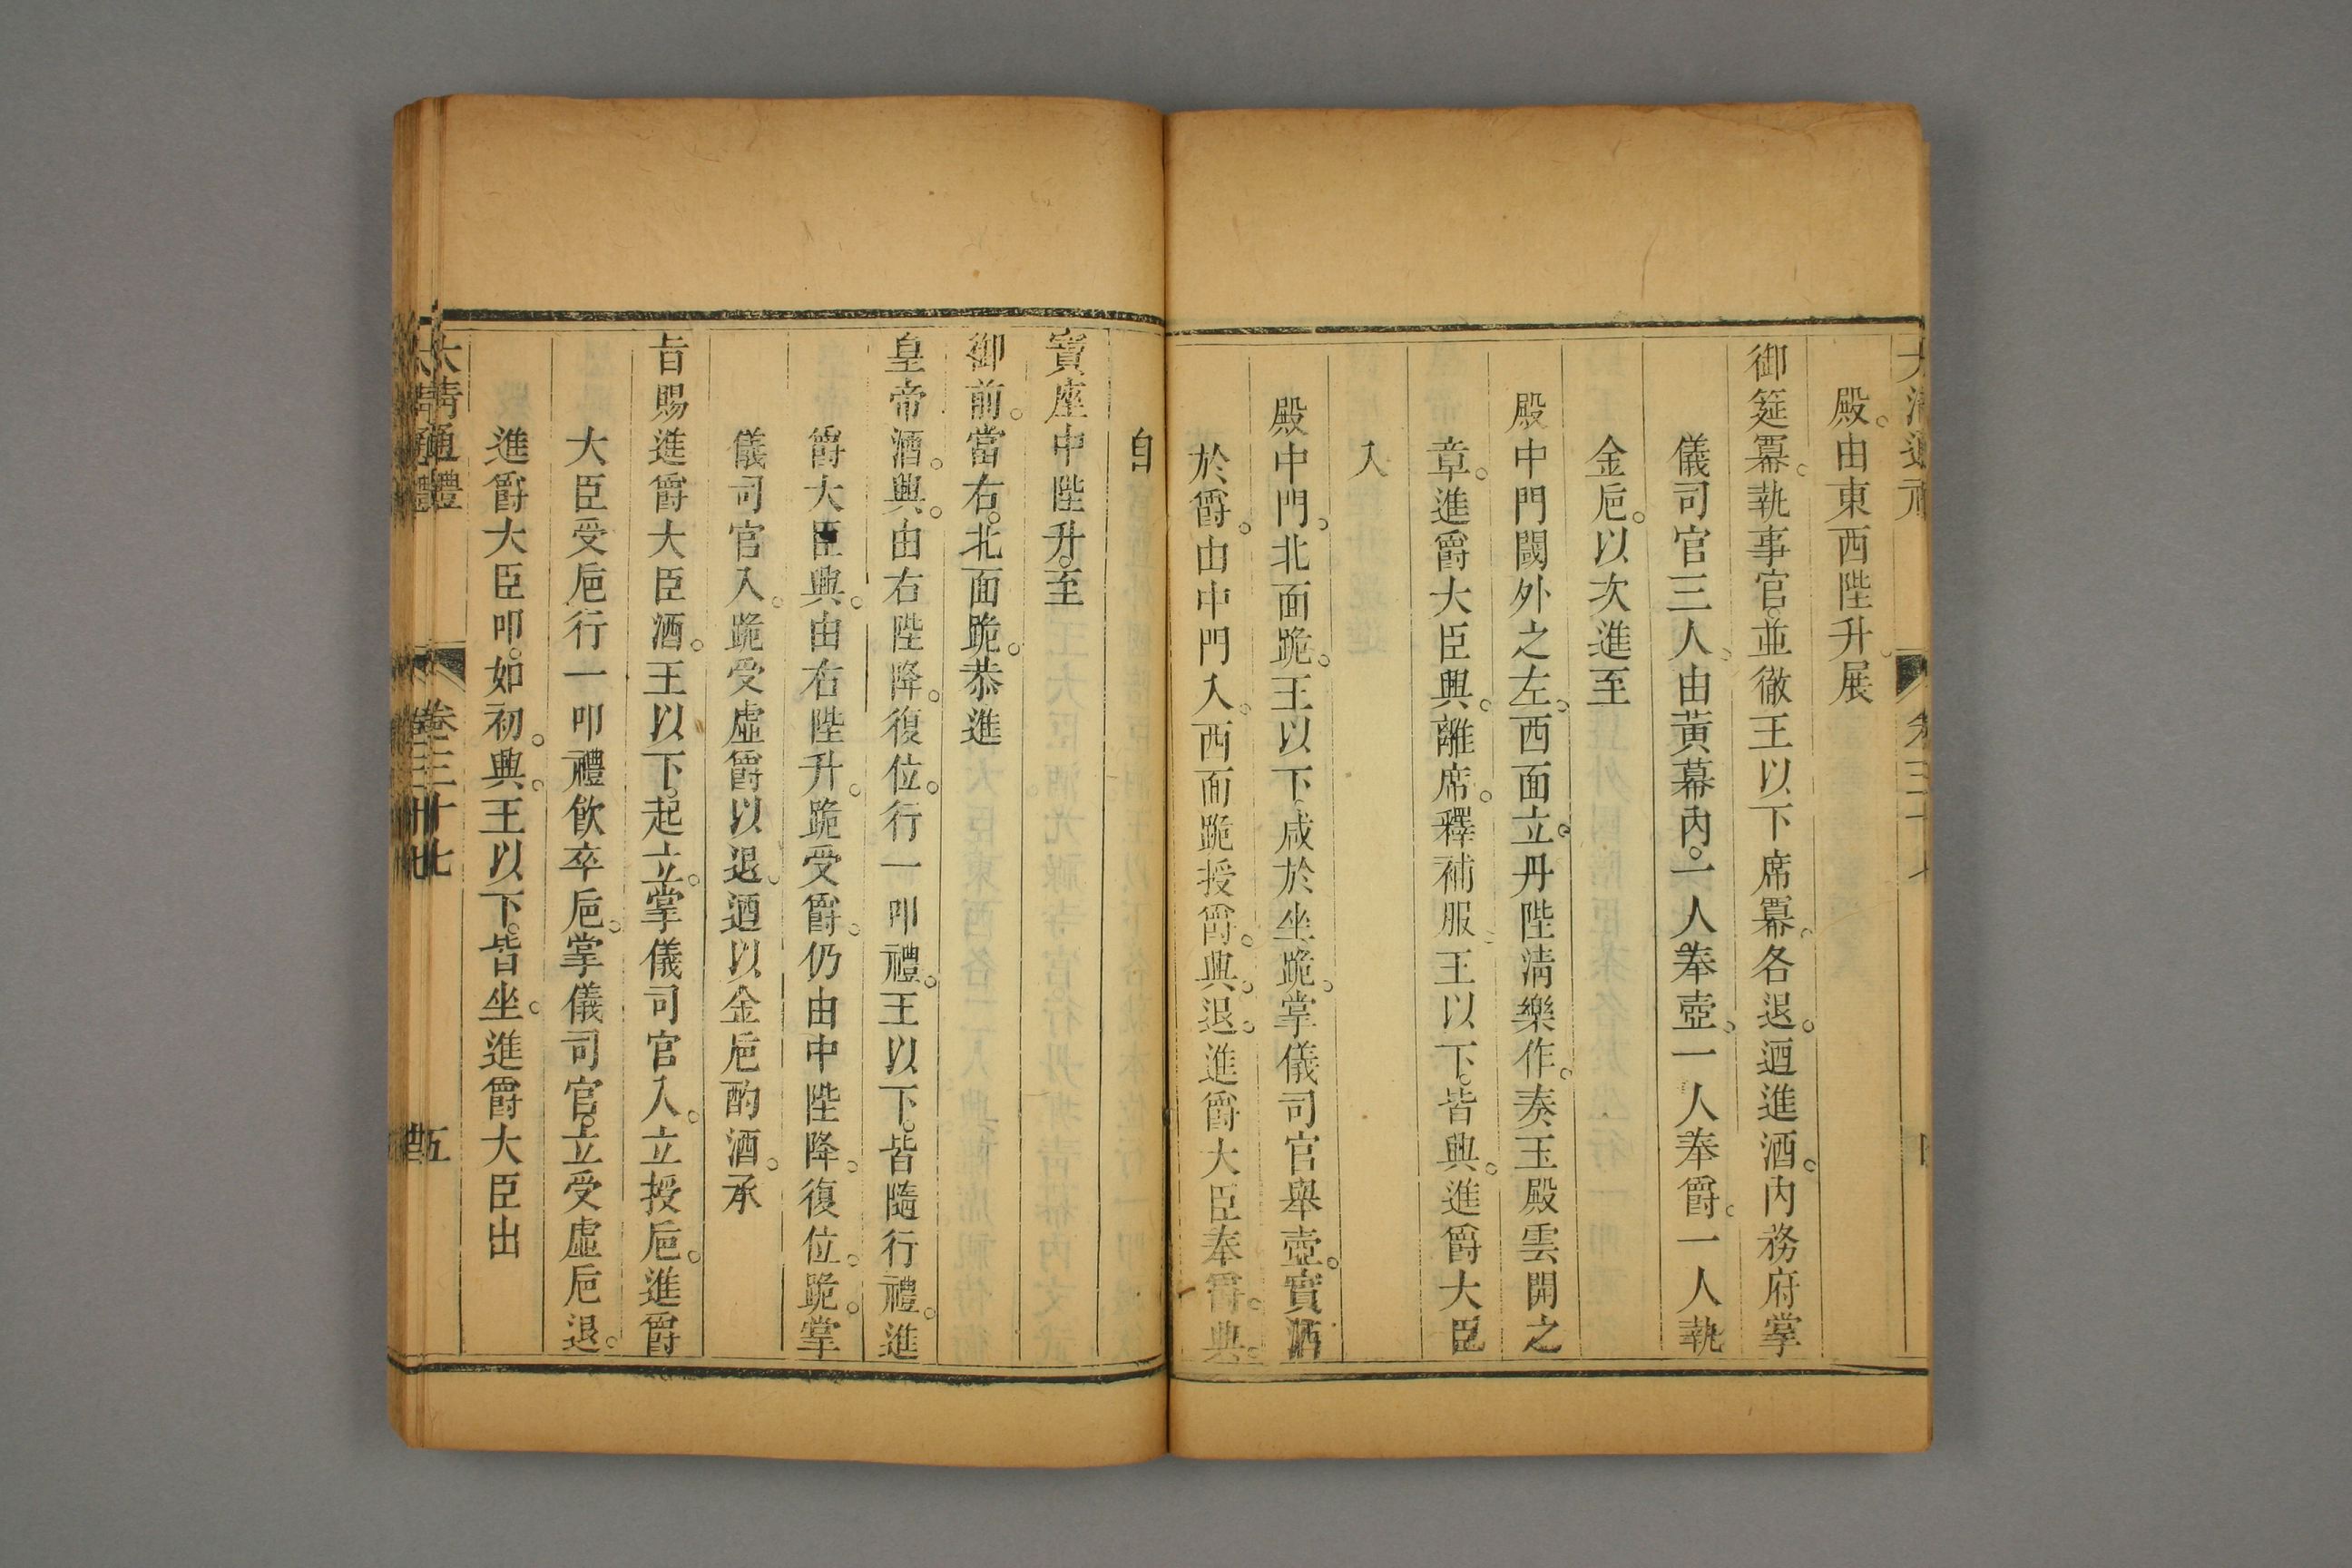 大清通禮 卷三十七
殿。由東西陛升。展
御筵冪。執事官。並徹王以下席冪。各退。迺進酒。內務府掌
儀司官三人。由黃幕內。一人奉壺。一人奉爵。一人執
金巵。以次進至
殿中門閾外之左。西面立。丹陛淸樂作。奏玉殿雲開之
章。進爵大臣興。離席。釋補服。王以下。皆興。進爵大臣
入
殿中門。北面跪。王以下。咸於坐跪。掌儀司官舉壺。實酒
於爵。由中門入。西面跪授爵。興。退。進爵大臣奉爵。興。
自
寶座中陛升。至
御前。當右。北面跪。恭進
皇帝酒。興。由右陛降。復位。行一叩禮。王以下。皆隨行禮。進
爵大臣興。由右陛升。跪受爵。仍由中陛降。復位。跪。掌
儀司官入。跪受虛爵以退。迺以金巵酌酒。承
旨賜進爵大臣酒。王以下。起立。掌儀司官入。立授巵。進爵
大臣受巵行一叩禮飲卒巵。掌儀司官。立受虛巵退。
進爵大臣叩。如初。興。王以下。皆坐。進爵大臣出
大清通禮 卷三十七 五